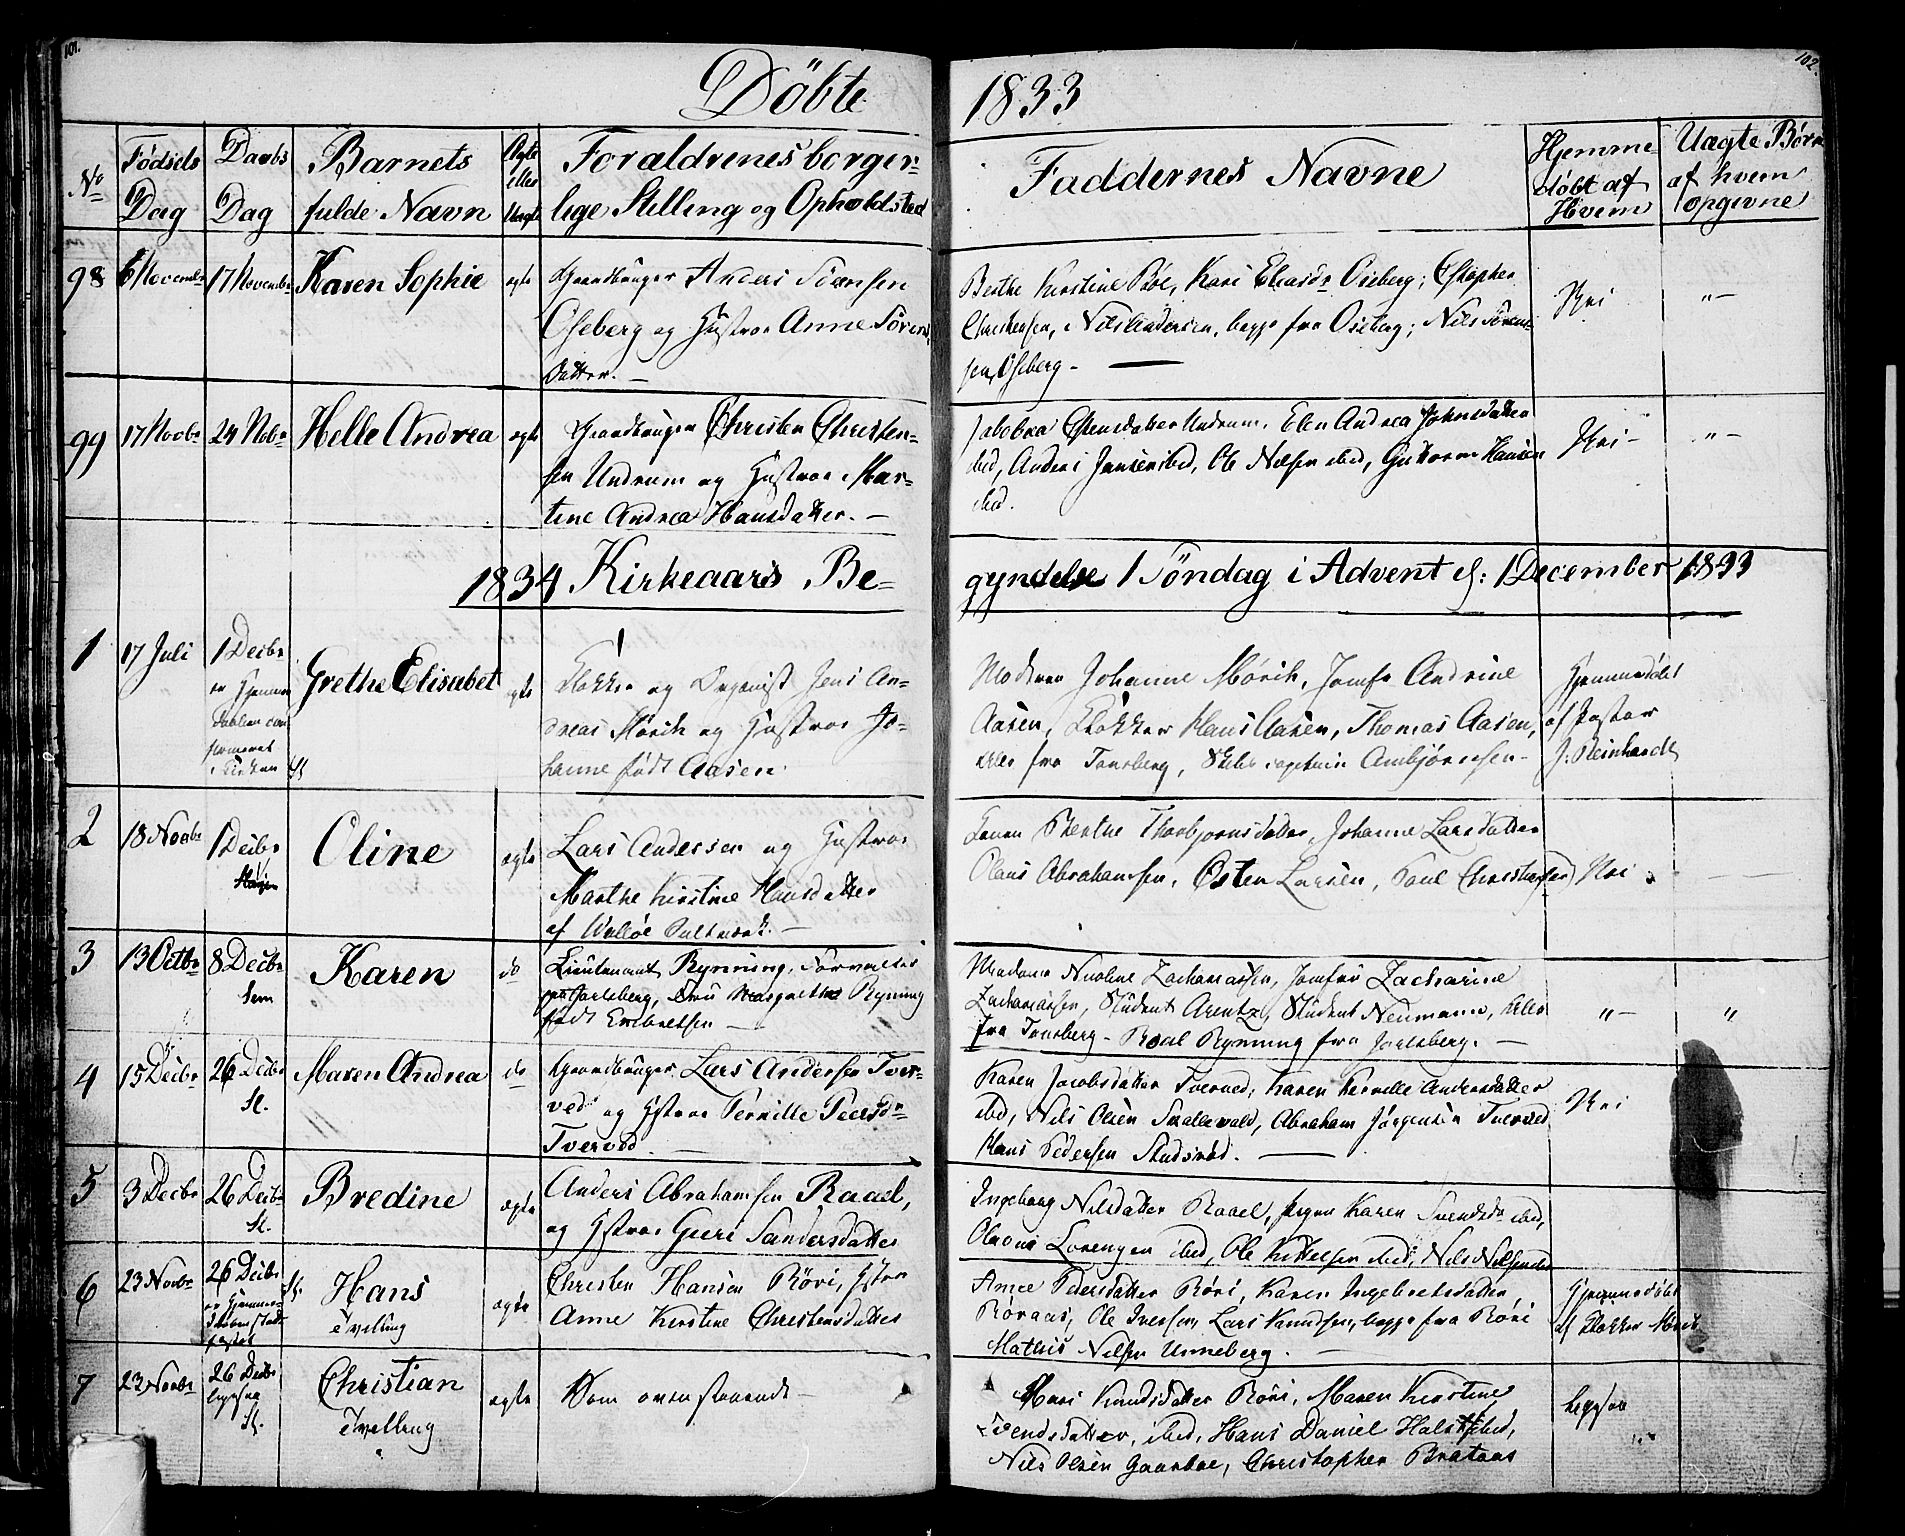 101.
102.
Döbte
1833
No
Fødsels Dag
Daabs Dag
Barnets fulde Navn
Ægte eller Uægte
Forældrenes borger-
lige Stilling og Opholdsted
Faddernes Navne
Hjemme
döbt af
Hvem
Uægte Børn
af hvem
opgivne
98 6 November 17 November Karen Sophie ægte
Gaardbruger Anders Sörensen
Oseberg og Hustroe Anne Sörens
Datter. —
Berthe Kirstine Böe, Kari Eliasdr Oseberg; Christopher
Christensen, Nils Andersen, begge fra Oseberg; Nils Sören-
sen, Oseberg -
Nei
"—
99 17 Novbr 24 Novbr Helle Andrea ægte
Gaardbruger Christen Christen-
sen Undrum og Hustroe Mar-
tine Andrea Hansdatter. —
Undrum, Elen Andrea Johnsdatter
ibid, Anders Jensen ibid, Ole Nilsen ibid, Guttorm Hansen
ibid.
Nei -
"—
1834 Kirkeaars Be-
gyndelse 1 Söndag i Advent d: 1 December 1833
1 17 Juli 1 Decbr
er Hjemme
Daaben con
firmeret
i Kirken Sl
Grethe Elisabet ægte
Klokker og Organist Jens An-
dreas Mörik og Hustroe Jo-
hanne født Aasen.
Madame Johanne Mörik, Jomfr Andrine
Aasen, Klokker Hans Aasen, Thomas Aasen,
alle fra Tønsberg, Ambjörnsen -
Hjemmedöbt
af Pastor
J. Reinhardt
2 18 Novbr 1 Decbr
Oline ægte
Lars Andersen og Hustroe
Marthe Kirstine Hansdatter
af Walløe Saltværk. —
Konen Berthe Thorbjørnsdatter, Johanne Larsdatter
Olaus Abrahamsen, Østen Larsen, Poul Christensen
Nei
3 13 Octbr 8 Decbr
Sem
Karen do
Lieutenant Rynning, Forvalter
paa Jarlsberg, Fru Margrethe Rynning
født Enebretsen —
Madame Nicoline Zachariassen, Jomfru Zacharine
Zachariassen, Student Arentz, Student Neumann, alle
fra Tønsberg - Roal Rynning fra Jarlsberg. —
"—
"
4 15 Decbr 26 Decbr
Sl.
Maren Andrea do
Gaardbruger Lars Andersen Tver-
ved og Hstroe Pernille Peersdr
Tverved. —
Karen Jacobsdatter Tverved, Karen Pernille Andersdatter
ibid, Nils Olsen Skallevold, Abraham Jörgensen Tverved
Hans Pedersen Stubsrød. —
Nei
5 3 Decbr 26 Decbr
Sl.
Bredine ægte
Anders Abrahamsen Raael,
og Hstroe Guri Sandersdatter
Ingeborg Nilsdatter Raael, Pigen Karen Svendsdr ibid,
Olaves Lorenzen ibid, Ole Kittelsen ibid, Nils Nilsen ibid
6 23 Novbr 26 Decbr
er Hjemme-
Daaben stad
fæstet
Sl.
Hans
Tvilling
ægte
Christen Hansen Röri, Hstroe
Anne Kirstine Christensdatter
Anne Pedersdatter Röri, Karen Ingebretsdatter,
Röraas, Ole Iversen, Lars Knudsen, begge fra Röri
Mathis Nilsen Unneberg. —
Hjemmedöbt
af Klokker Mörik
7 23 Novbr 26 Decbr
ligesaa
Sl.
Christian
Tvilling
ægte
Som ovenstaaende —
Mari Knudsdatter Röri, Maren Kirstine
Svendsdatter, ibid, Hans Daniel Halst ibid,
Nils Olsen Gaarboe, Christopher Brataas
ligesaa